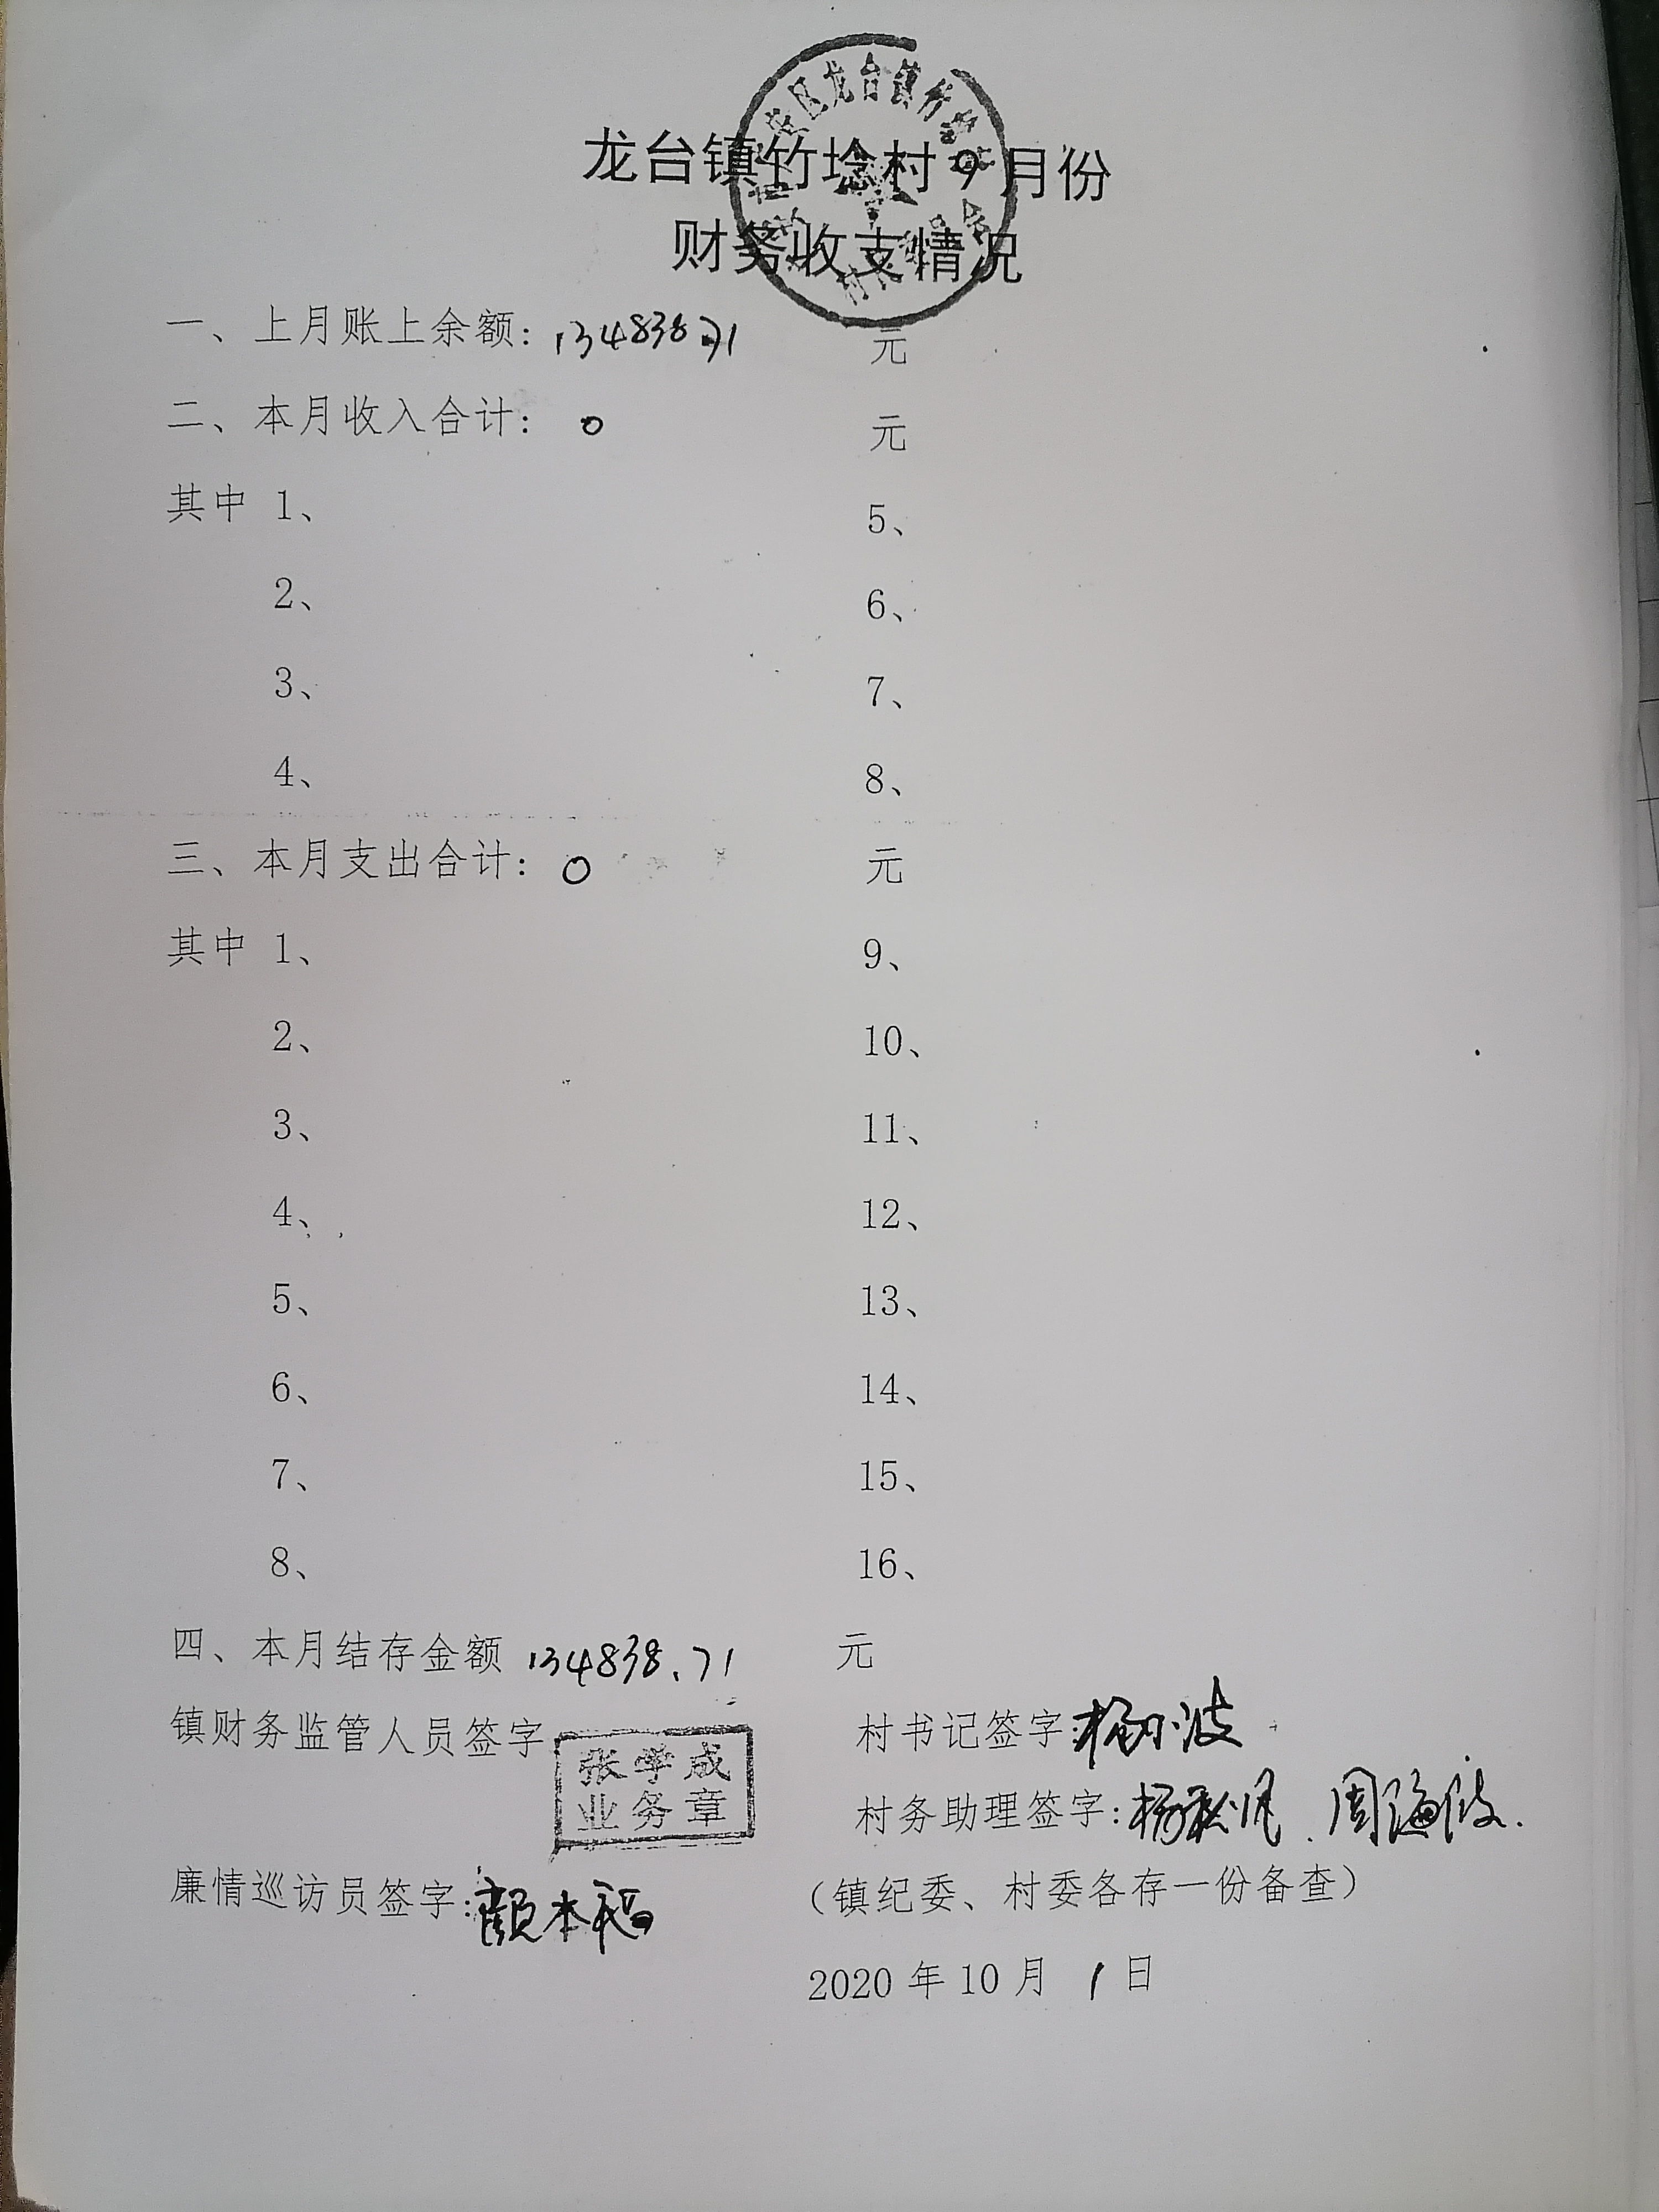 龙台镇竹埝村9月份
财务收支情况
一、上月账上余额：134838.71 元
二、本月收入合计： 0 元
其中 1、 5、
2、 6、
3、 7、
4、 8、
三、本月支出合计： 0 元
其中 1、 9、
2、 10、
3、 11、
4、 12、
5、 13、
6、 14、
7、 15、
8、 16、
四、本月结存金额 134838.71 元
镇财务监管人员签字 村书记签字：杨小波
张学成
业务章
村务助理签字：杨秋凤、周海波
廉情巡访员签字：颜本福 （镇纪委、村委各存一份备查）
2020 年 10 月 1 日